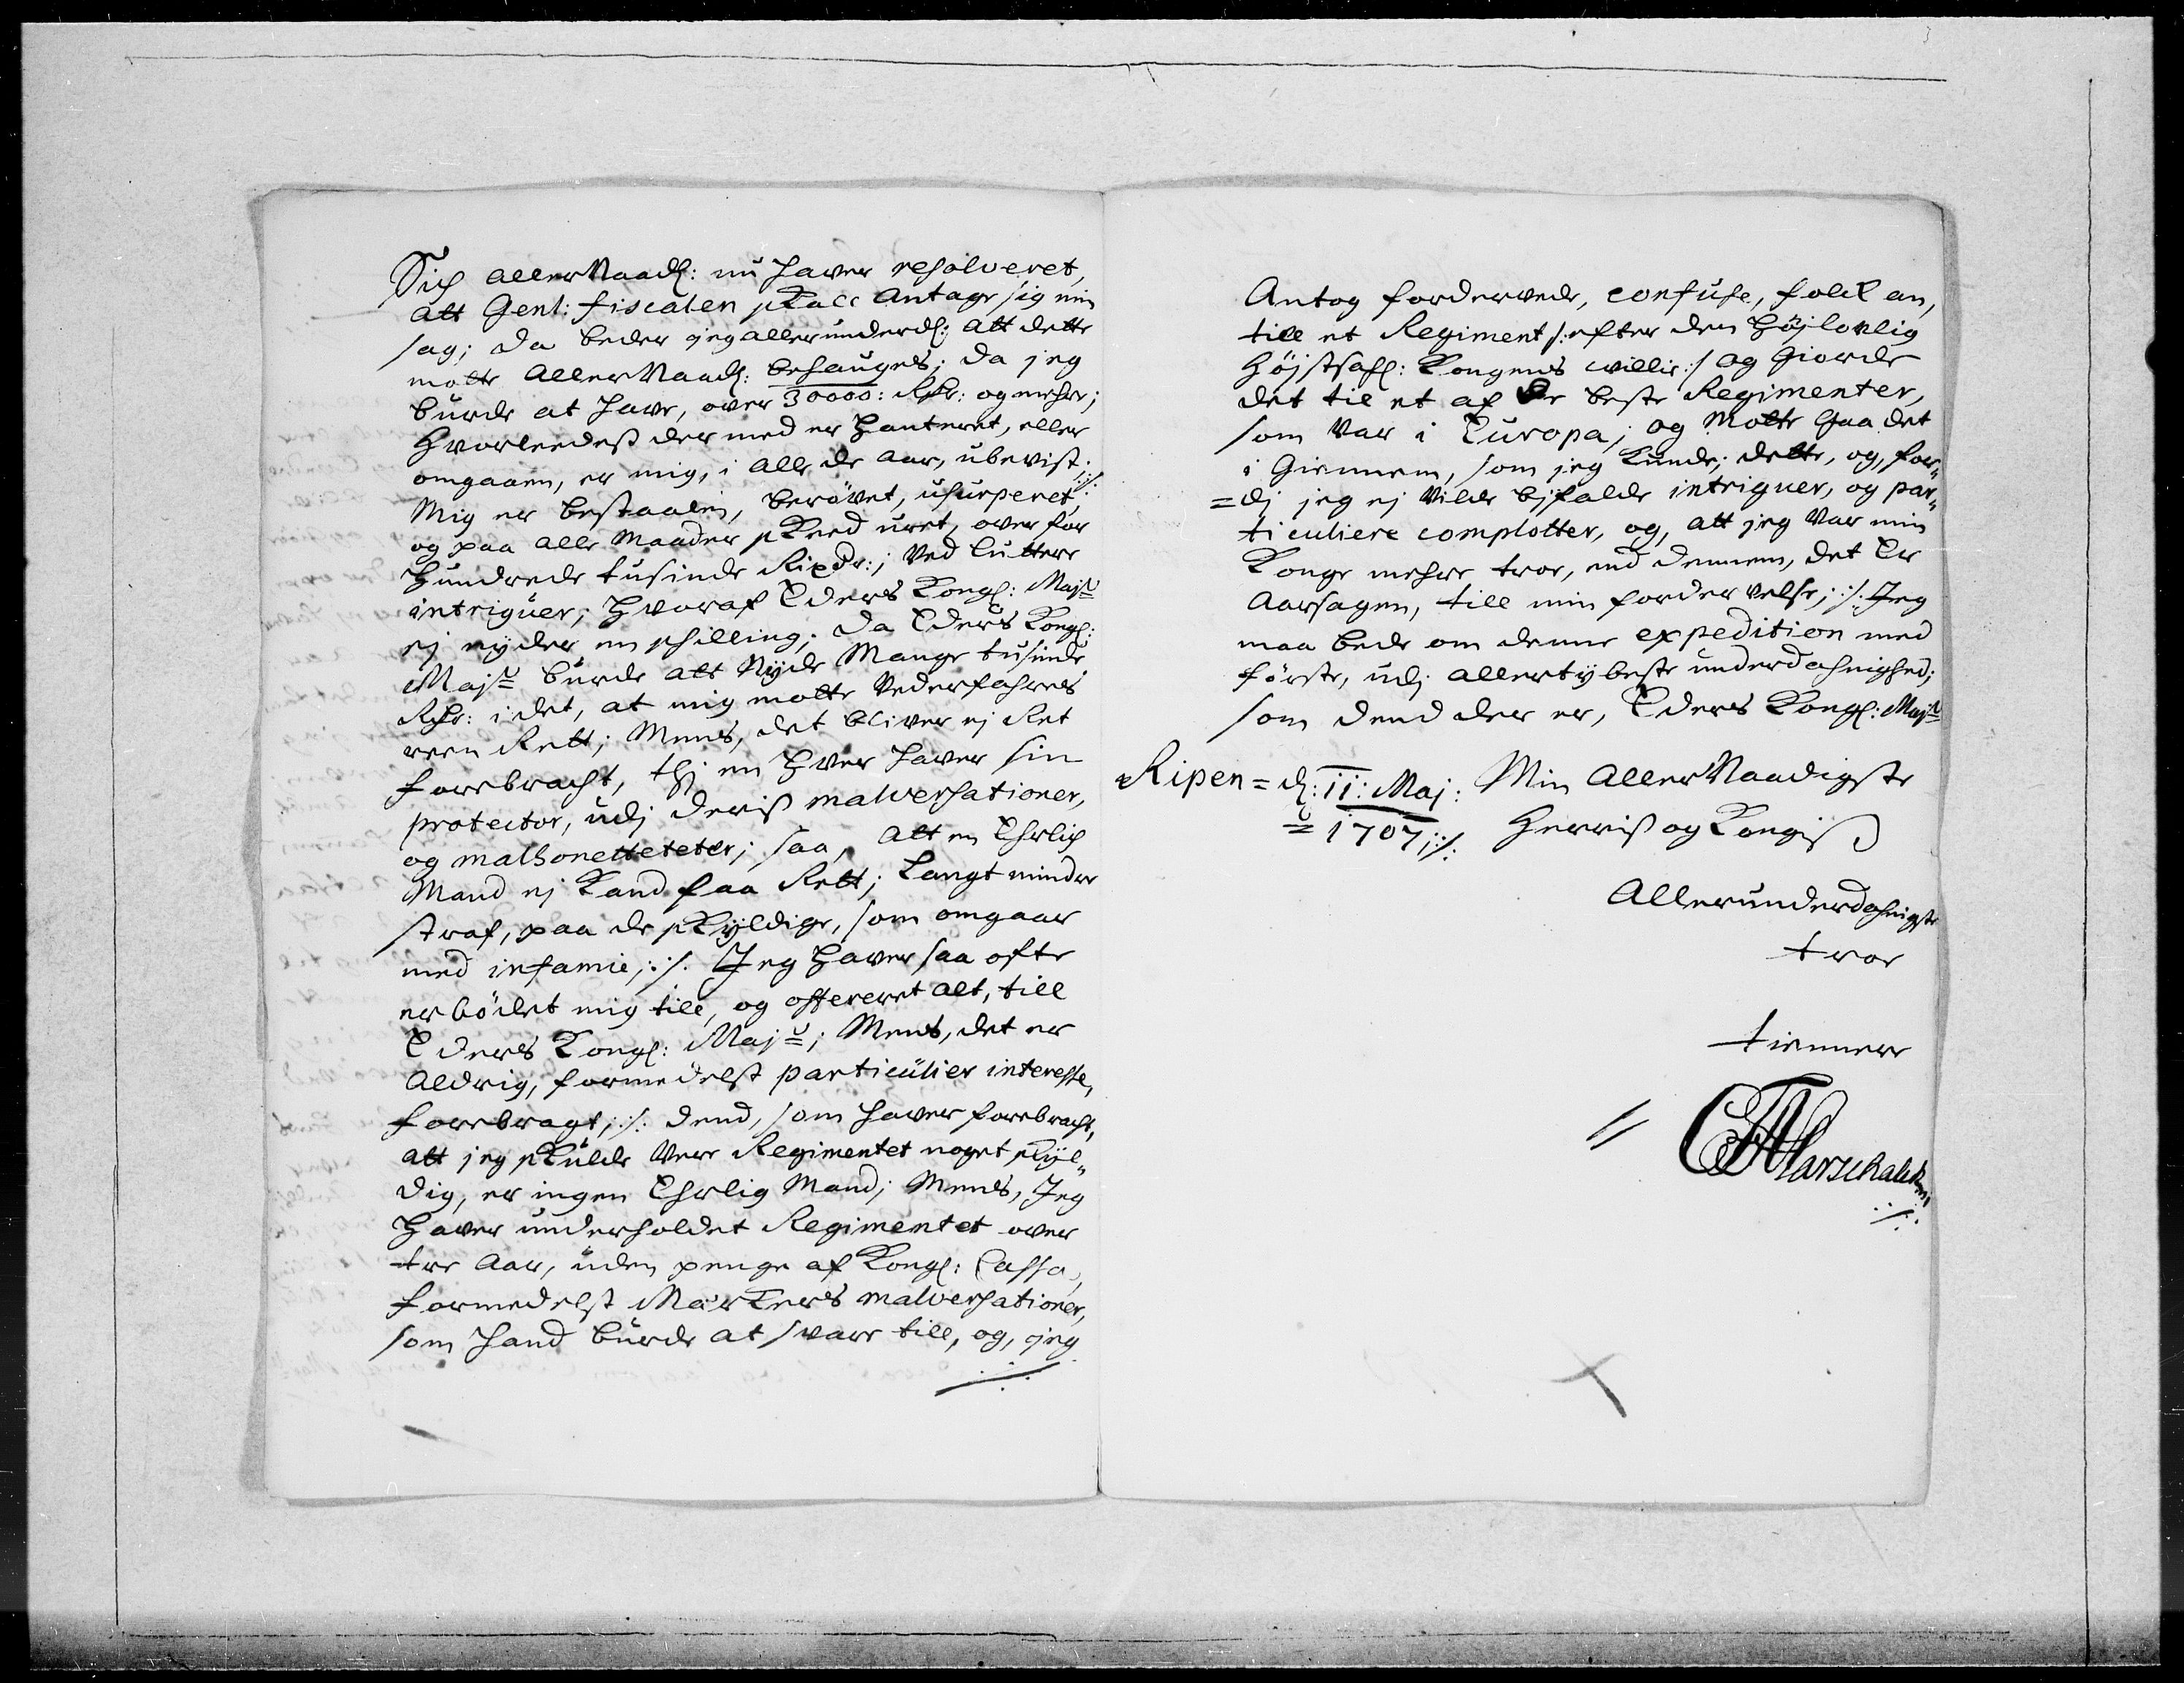 Sich allerNaadl: nu haver resolveret,
att Genl: fiscalen skall Antage sig min
sag; da beder jeg allerunderdl: att dette
motte AllerNaadl: besauges; da jeg
burde at have, over 30000: Rdr: og mehre;
Hvorleedeß der med er Hanteret, eller
omgaaen, er mig, i alle de Aar, ubevist ;:/:
Mig er bestaalen, berövet, usurperet,
og paa alle Maader skeed uret, over for
Hundrede tusinde Rixdr:; Ved lutter
intriguer; Hvoraf Eders Kongl: Majt
ej nyder en schilling; da Eders Kongl:
Majt burde att Nyde Mange tusinde
Rdr: i det, at mig motte Vederfahres
reen Rett; Mens, det bliver ej Ret
forebracht, thj en Hver haver sin
protector, udj deriß malversationer,
og malhonetteteter; saa, att en Ehrlich
Mand ej Kand faa Rett; Langt mindre
straf, paa de skyldige, som omgaar
med infamie;:/: Jeg Haver saa ofte
erbödet mig till, og offereret alt, till
Eders Kongl: Majt; Mens, det er
Aldrig, formedelst particulier interesse,
forebragt;:/: dend, som haver forebracht,
att jeg skulde Vere Regimentet noget skyl„
dig, er ingen Ehrlig Mand; Mens, Jeg
Haver underholdet Regimentet over
tre Aar, uden penge af Kongl: Cassa,
formedelst Märkers malversationer,
som hand burde at svare till, og, jeg
Antog fordervede, confuse, folck an,
till et Regiment /: efter den Höjlovlig
Höjstsahl: Kongens willie :/ og Giorde
det till et af de beste Regimenter,
som Var i Europa; og Motte Gaa det
i Giennem, som jeg Kunde; dette, og, for„
=dj jeg ej Vilde bjfalde intriguer, og par„
ticuliere complotter, og, att jeg Var min
Konge mehre troe, end dennem, det Er
Aarsagen, till min fordervelse;:/: Jeg
maa bede om denne expedition med
förste, udj allertybeste underdahnighed;
som dend der er, Eders Kongl: Majt
Ripen = d: 11: Maj:
= 1707;:/:
Min AllerNaadigste
Herriß og Kongiß
Allerunderdahnigste
troe
tienner
CFMarschalck